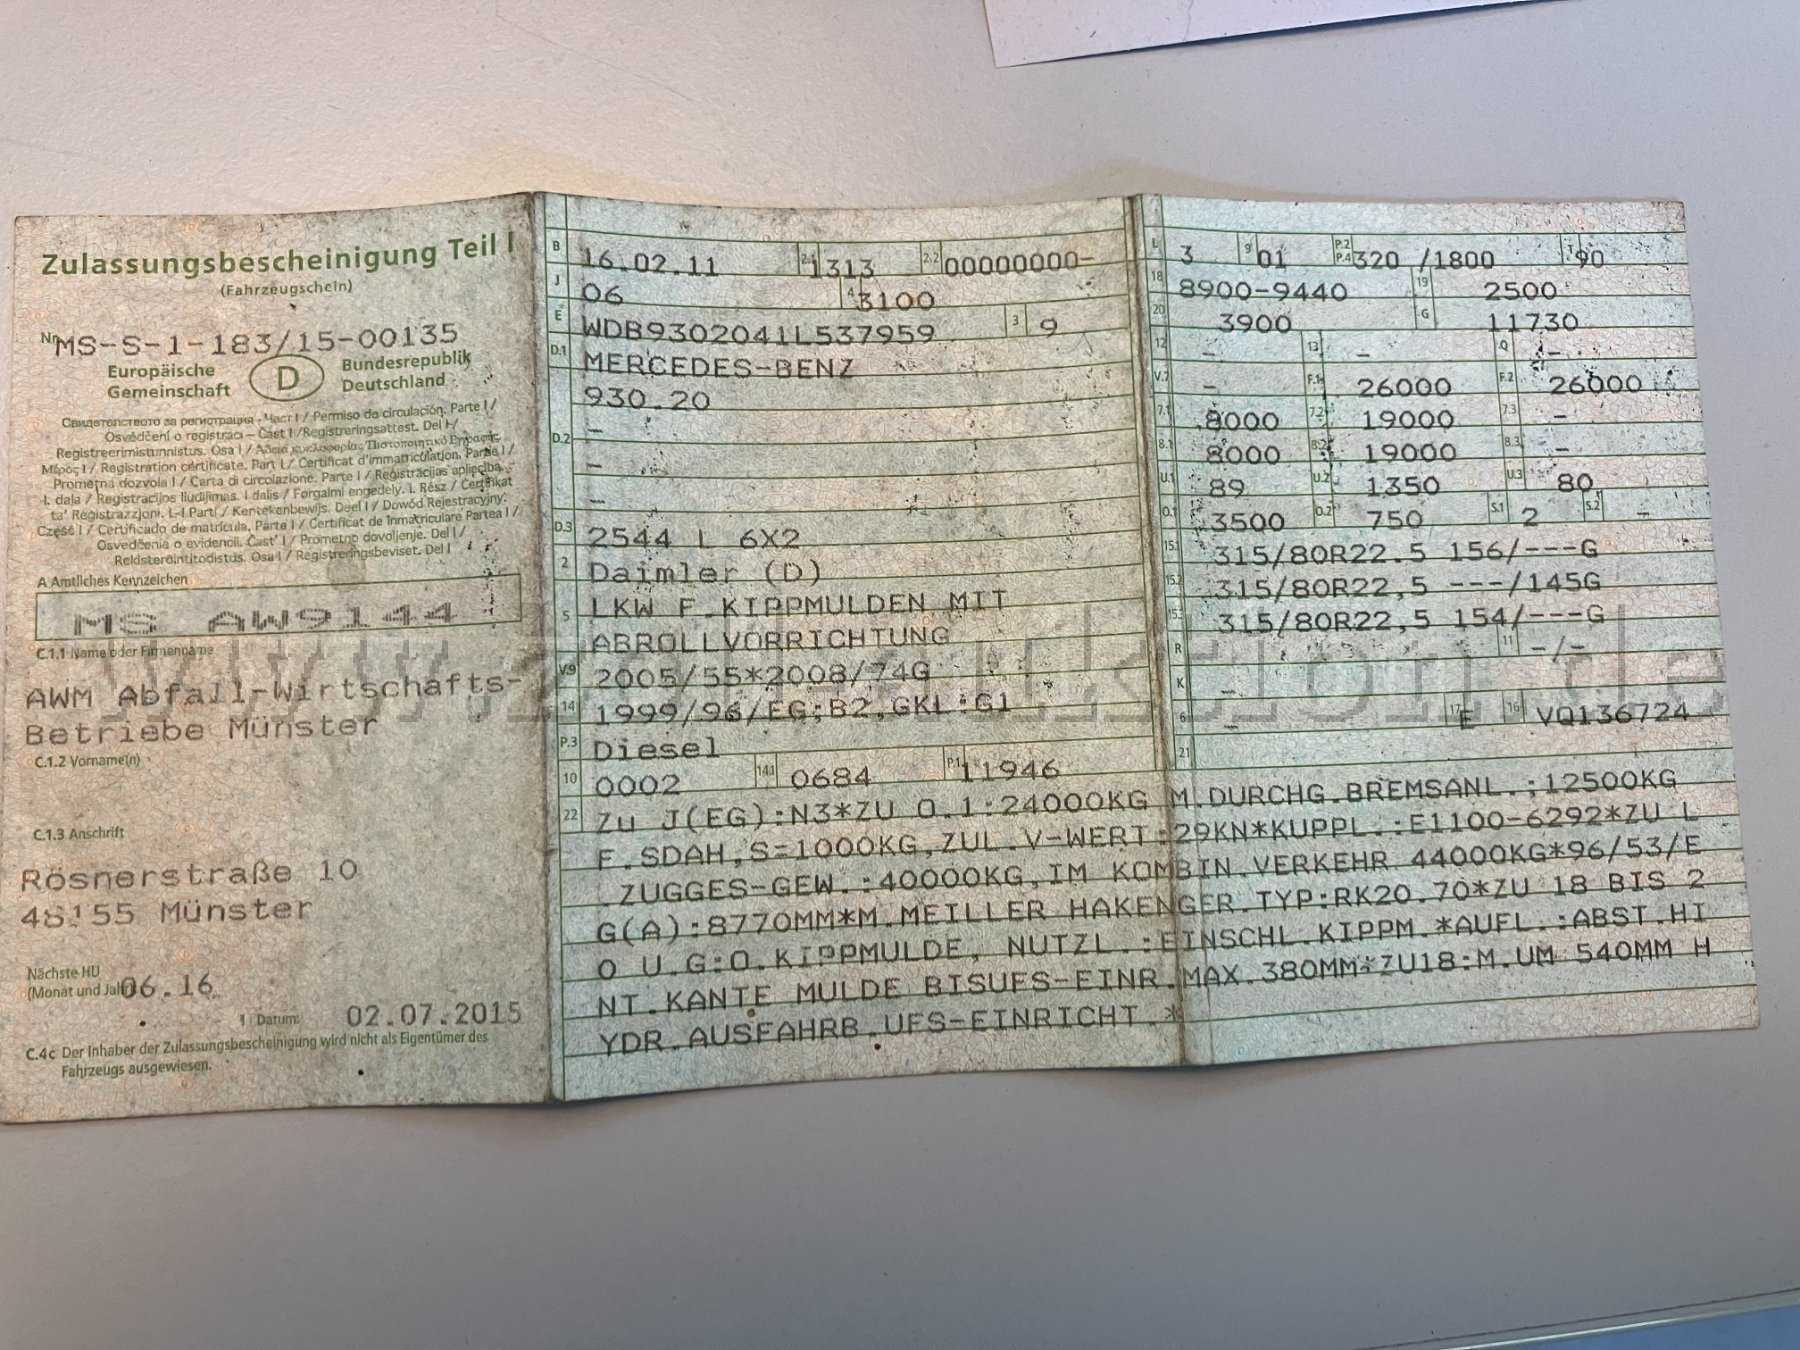 Zulassungsbescheinigung Teil I
(Fahrzeugschein)
Nr. MS-S-1-183/15-00135
Europäische Gemeinschaft
D
Bundesrepublik Deutschland
Свидетелството за регистрация - Част I / Permiso de circulación. Parte I /
Osvědčení o registraci – Část I / Registreringsattest. Del I /
Registreerimistunnistus. Osa I /
Μέρος I / Registration certificate. Part I / Certificat d'immatriculation. Partie I /
Prometna dozvola I / Carta di circolazione. Parte I / Reģistrācijas apliecība.
I. daļa / Registracijos liudijimas. I dalis / Forgalmi engedély. I. Rész / Ċertifikat
ta' Reġistrazzjoni. L-I Parti / Kentekenbewijs. Deel I / Dowód Rejestracyjny.
Część I / Certificado de matrícula. Parte I / Certificat de înmatriculare Partea I /
Osvedčenie o evidencii. Časť I / Prometno dovoljenje. Del I /
Rekisteröintitodistus. Osa I / Registreringsbeviset. Del I
A Amtliches Kennzeichen
MS AW9144
C.1.1 Name oder Firmenname
AWM Abfall-Wirtschafts-
Betriebe Münster
C.1.2 Vorname(n)
C.1.3 Anschrift
Rösnerstraße 10
48155 Münster
Nächste HU
(Monat und Jahr) 06.16
I Datum: 02.07.2015
C.4c Der Inhaber der Zulassungsbescheinigung wird nicht als Eigentümer des
Fahrzeugs ausgewiesen.
B 16.02.11 2.1 1313 2.2 00000000-
J 06 4 3100
E WDB9302041L537959 3 9
D.1 MERCEDES-BENZ
930.20
–
D.2 –
–
D.3 2544 L 6X2
2 Daimler (D)
5 LKW F.KIPPMULDEN MIT
ABROLLVORRICHTUNG
V.9 2005/55*2008/74G
14 1999/96/EG;B2,GKL:G1
P.3 Diesel
10 0002 14.1 0684 P.1 11946
L 3 9 01 P.2 P.4 320 /1800 T 90
18 8900-9440 19 2500
20 3900 G 11730
12 – 13 – Q –
V.7 – F.1 26000 F.2 26000
7.1 8000 7.2 19000 7.3 –
8.1 8000 8.2 19000 8.3 –
U.1 89 U.2 1350 U.3 80
O.1 3500 O.2 750 S.1 2 S.2 –
15.1 315/80R22.5 156/---G
15.2 315/80R22,5 ---/145G
15.3 315/80R22,5 154/---G
R 11 -/-
K –
6 – 17 E 16 VQ136724
21
22 Zu J(EG):N3*ZU O.1:24000KG M.DURCHG.BREMSANL.;12500KG
F.SDAH,S=1000KG,ZUL.V-WERT:29KN*KUPPL.:E1100-6292*ZU L
.ZUGGES-GEW.:40000KG,IM KOMBIN.VERKEHR 44000KG*96/53/E
G(A):8770MM*M.MEILLER HAKENGER.TYP:RK20.70*ZU 18 BIS 2
0 U.G:O.KIPPMULDE, NUTZL.:EINSCHL.KIPPM.*AUFL.:ABST.HI
NT.KANTE MULDE BISUFS-EINR.MAX.380MM*ZU18:M.UM 540MM H
YDR.AUSFAHRB.UFS-EINRICHT.*